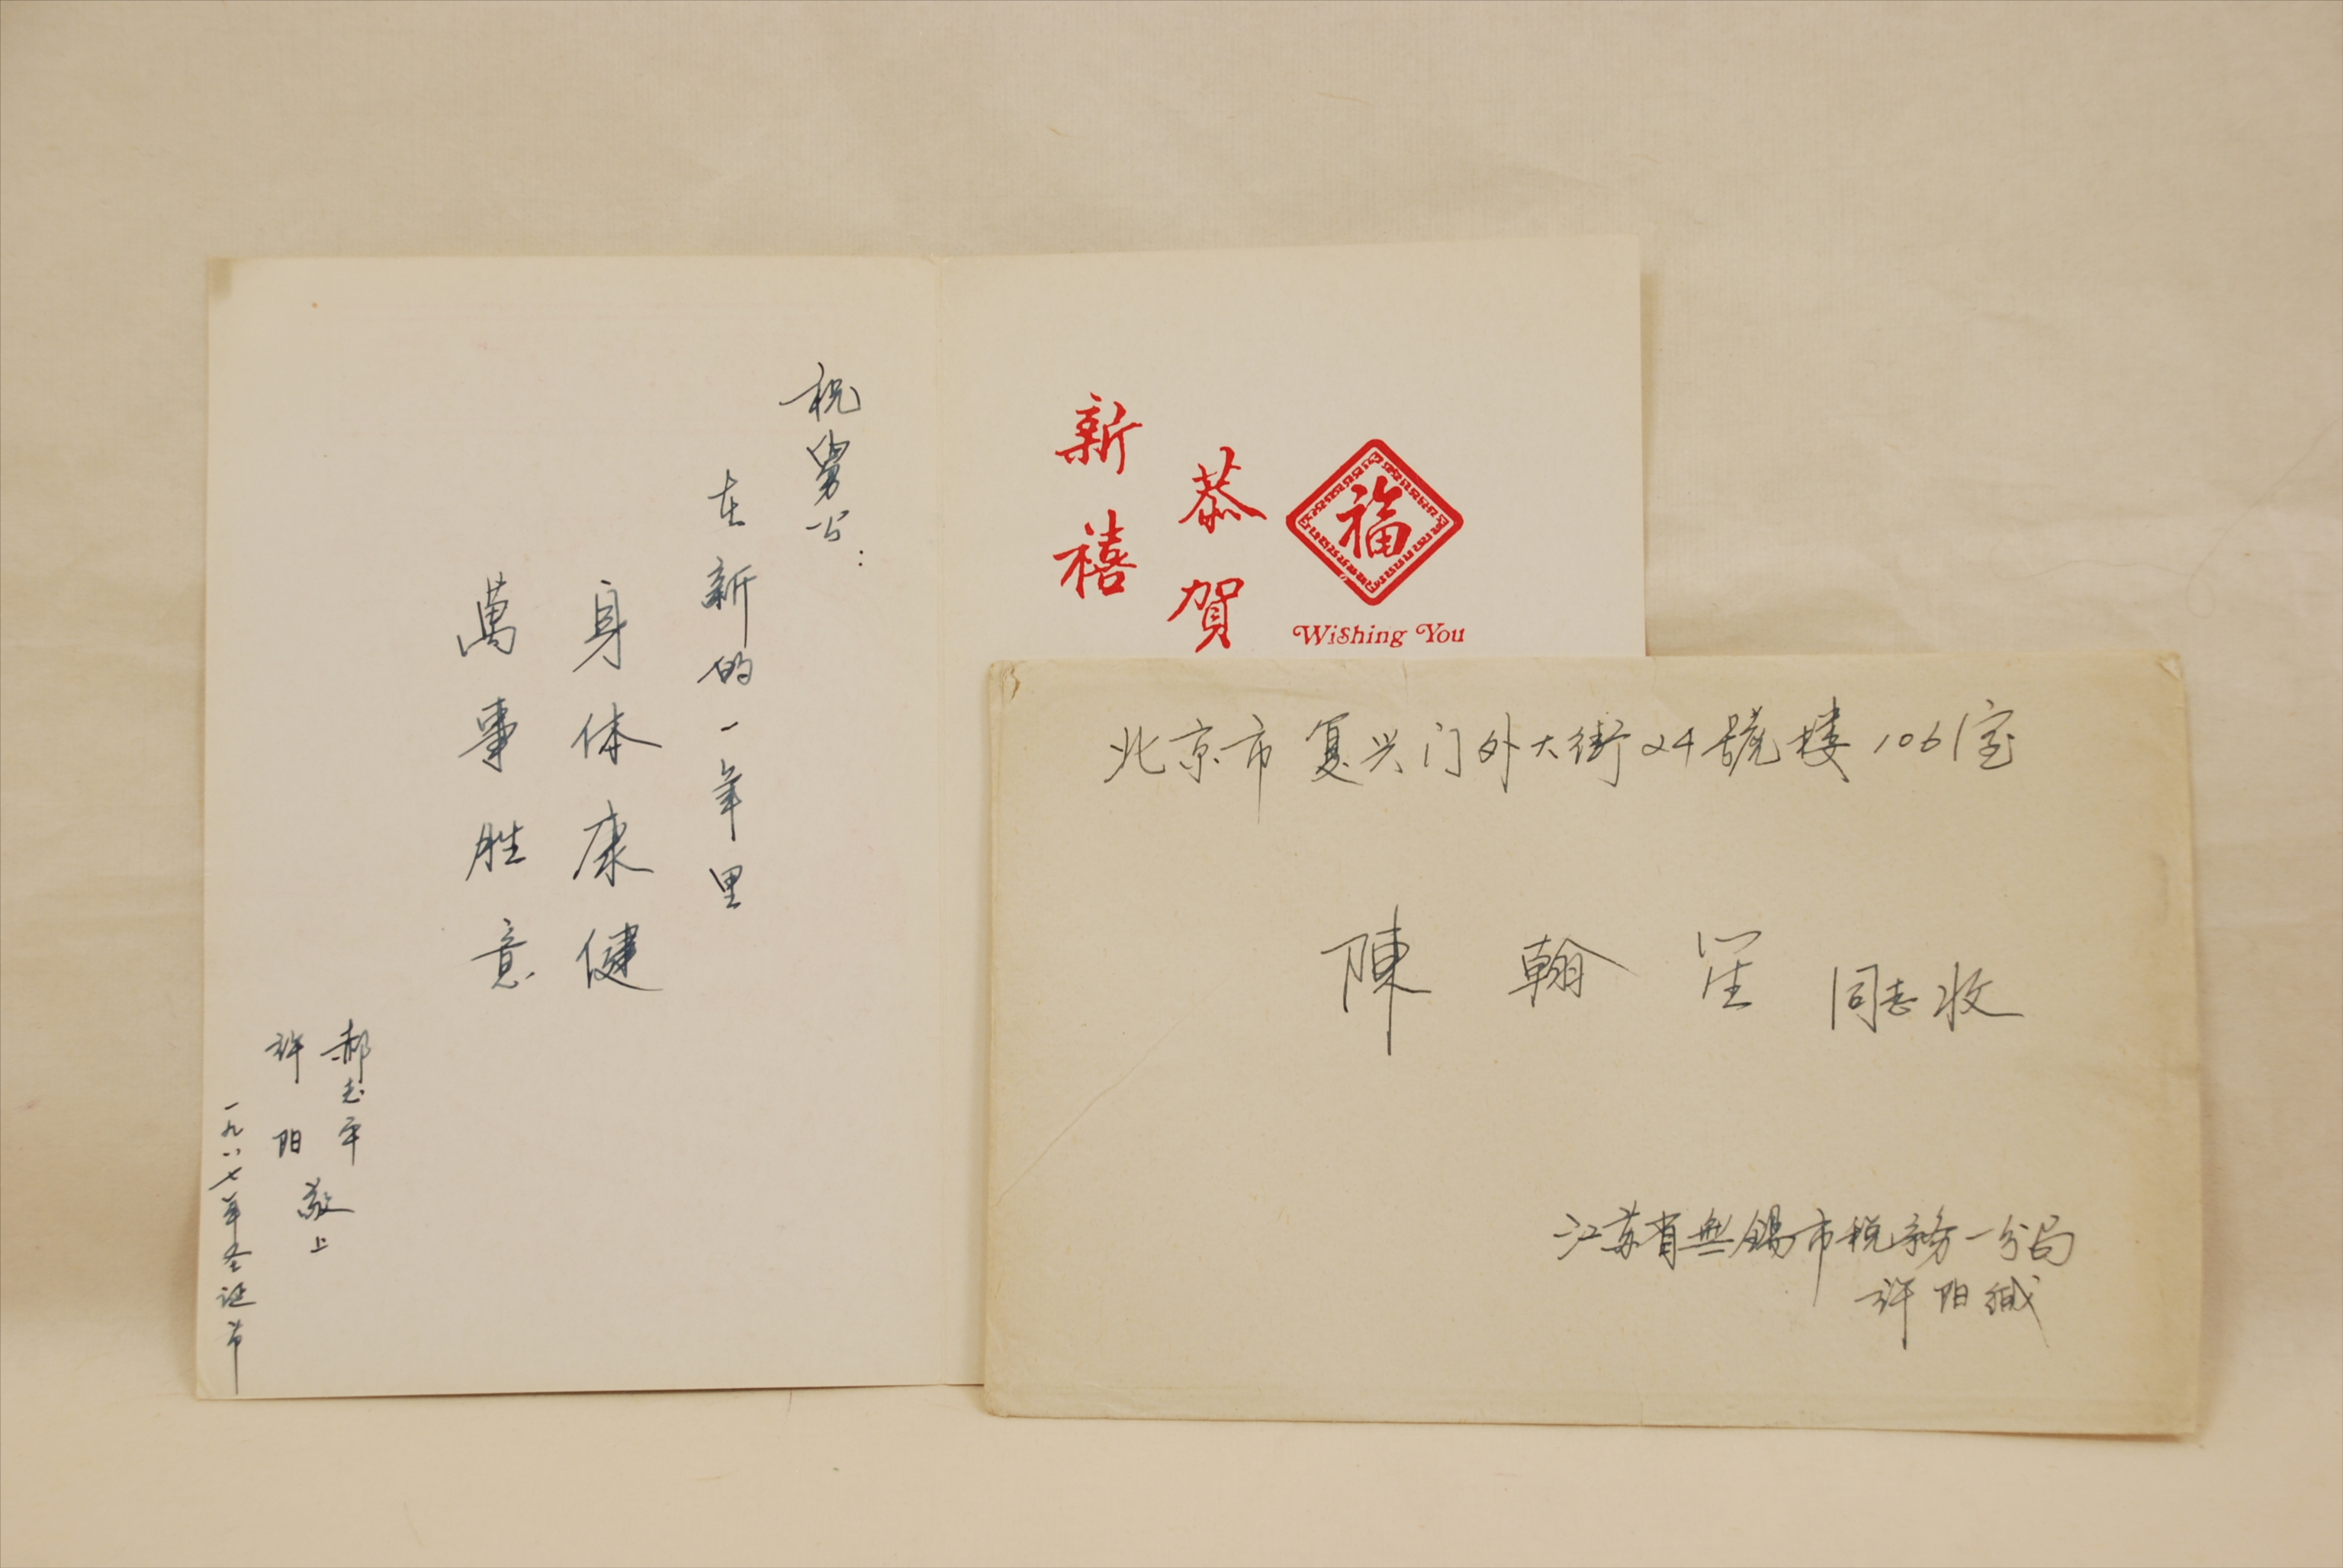 祝舅公：
在新的一年里
身体康健
萬事胜意
郝志平
许阳
敬上
一九八七年圣诞节
福
Wishing You
恭賀
新禧
北京市复兴门外大街24號楼1061室
陳翰笙同志收
江苏省無锡市税务一分局
许阳缄